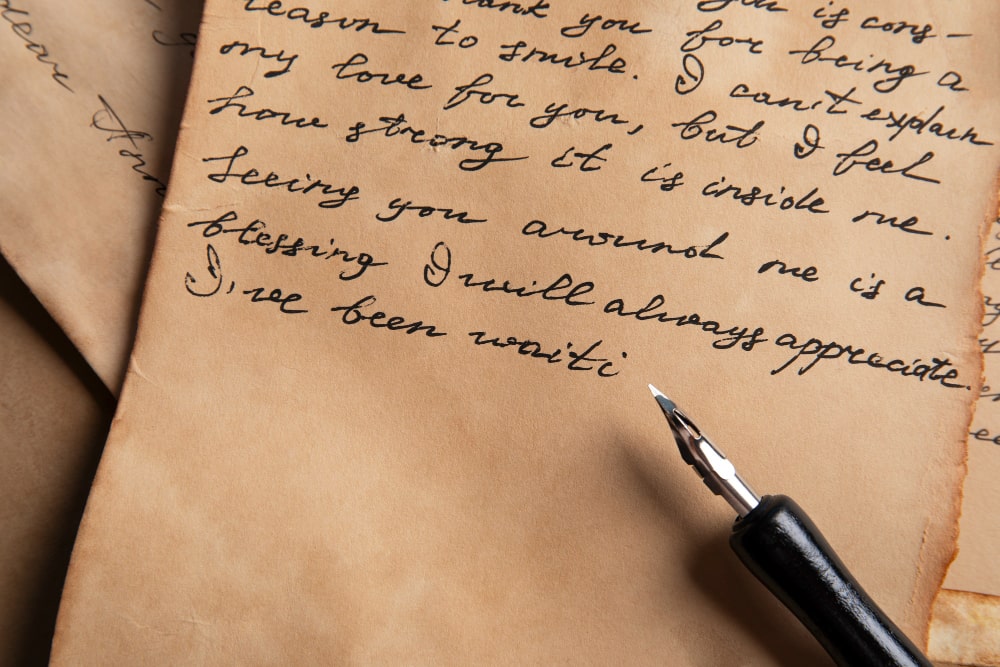 is cons-
you for being a
reason to smile. I can't explain
my love for you, but I feel
how strong it is inside me.
Seeing you around me is a
blessing I will always appreciate.
I've been waiti
dear Ann